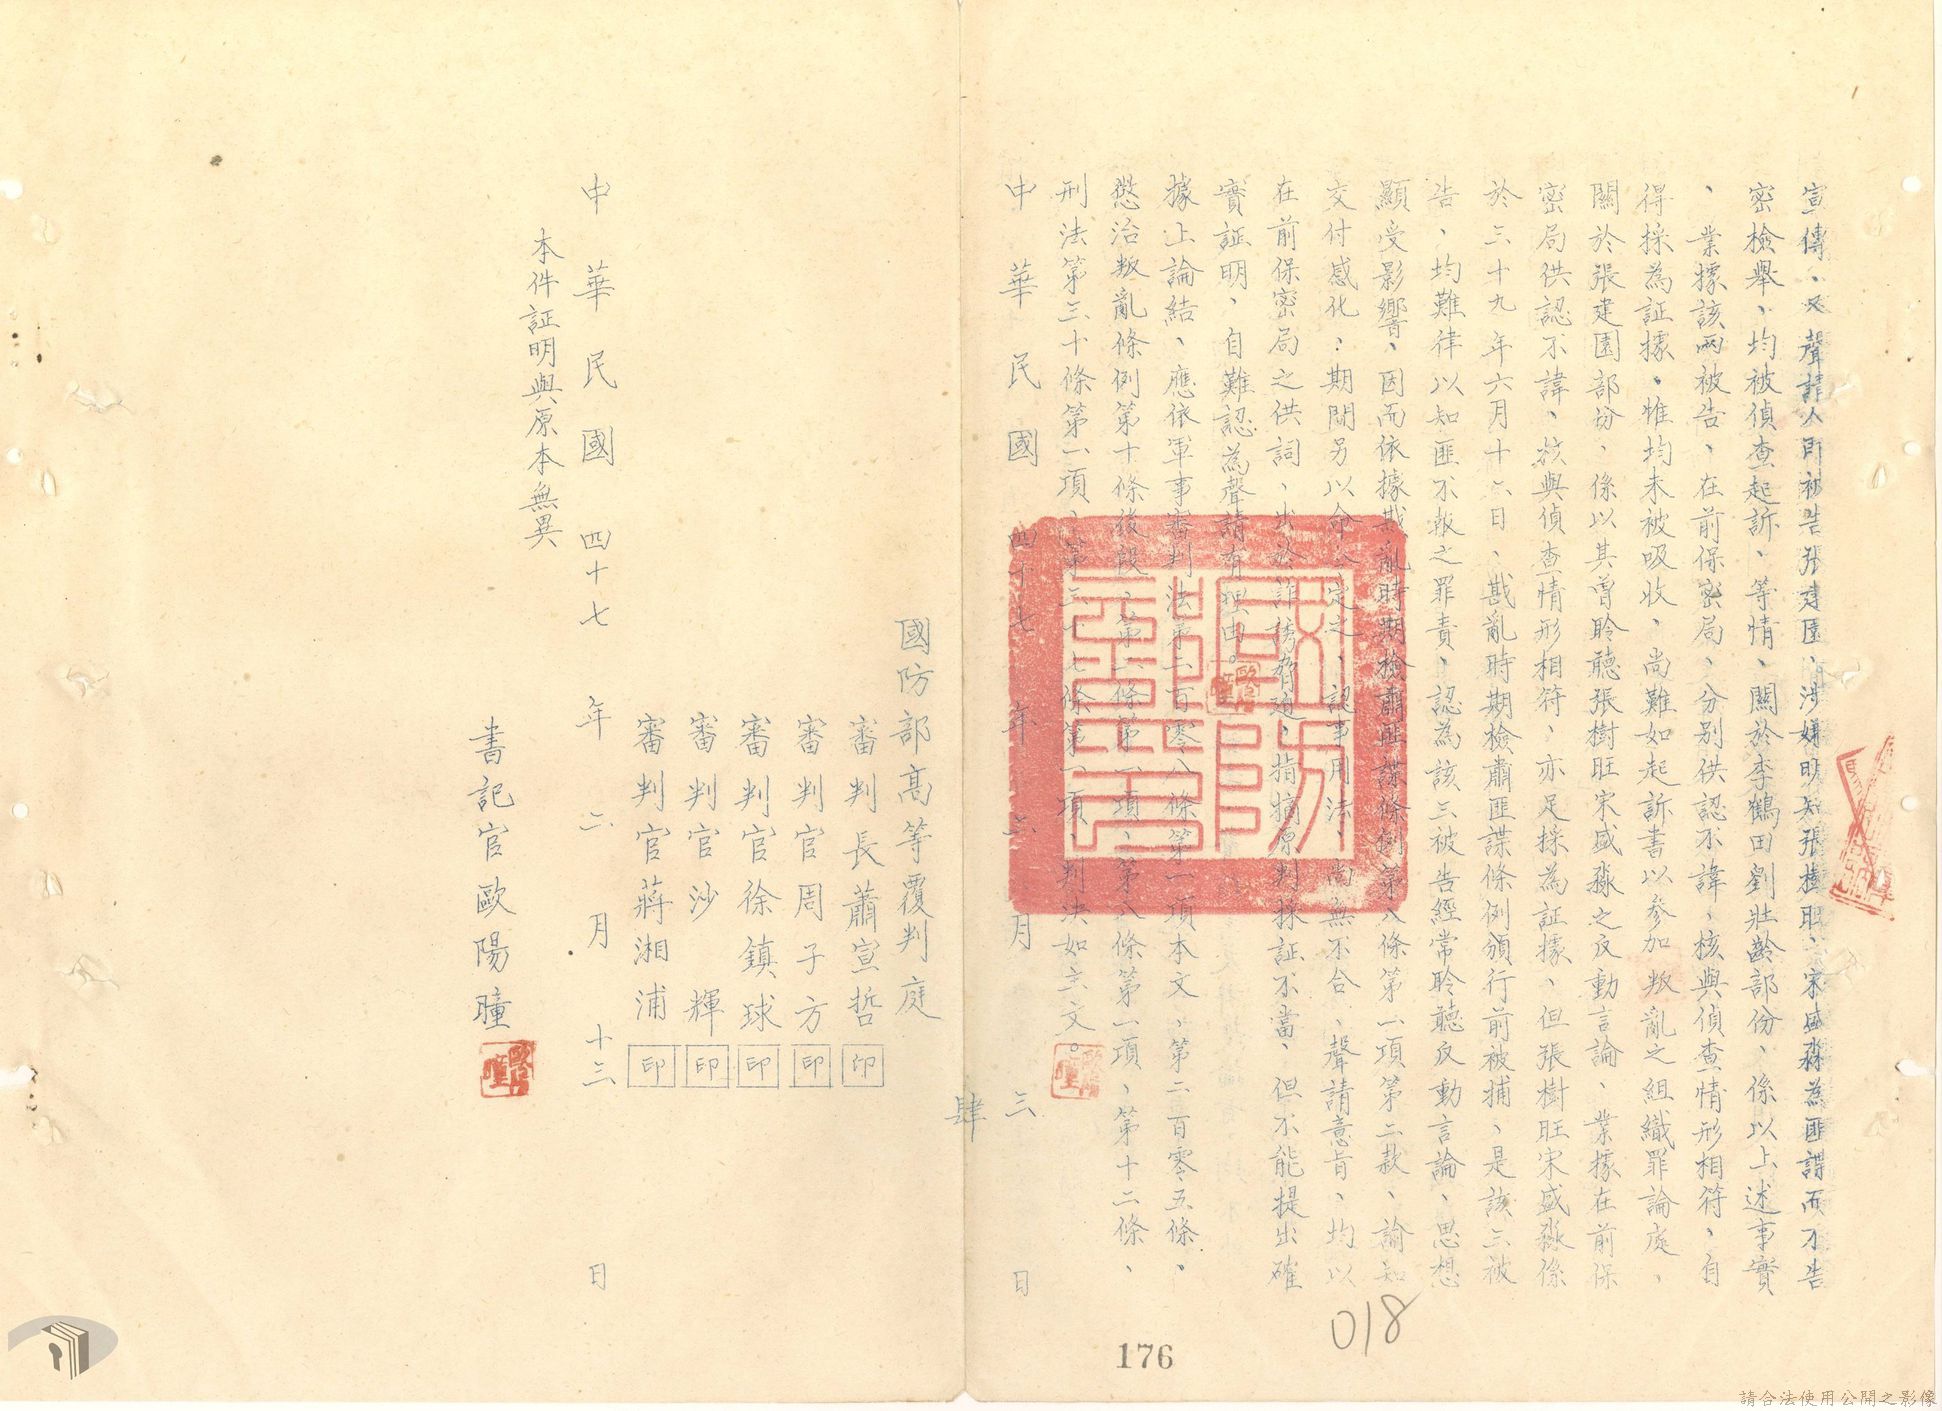 宣傳、又聲請人即被告張建園、涉嫌明知張樹旺、宋盛淼為匪諜而不告
密檢舉、均被偵查起訴、等情、關於李鶴田劉壯齡部份、係以上述事實
、業據該兩被告、在前保密局、分別供認不諱、核與偵查情形相符、自
得採為証據、惟均未被吸收、尚難如起訴書以參加叛亂之組織罪論處、
關於張建園部份、係以其曾聆聽張樹旺宋盛淼之反動言論、業據在前保
密局供認不諱、核與偵查情形相符、亦足採為証據、但張樹旺宋盛淼係
於三十九年六月十六日、戡亂時期檢肅匪諜條例頒行前被捕、是該三被
告、均難律以知匪不報之罪責、認為該三被告經常聆聽反動言論、思想
顯受影響、因而依據戡亂時期檢肅匪諜條例第八條第一項第二款、諭知
交付感化、期間另以命令定之、認事用法、尚無不合、聲請意旨、均以
在前保密局之供詞、出於詐誘脅迫、指摘原判採証不當、但不能提出確
實証明、自難認為聲請有理由。
據上論結、應依軍事審判法第二百零八條第一項本文、第二百零五條、
懲治叛亂條例第十條後段、第一條第一項、第八條第一項、第十二條、
刑法第三十條第一項、第三十七條第一項、判決如主文。
中華民國四十七年 月 三 日
肆
國防部高等覆判庭
審判長蕭宣哲 印
審判官周子方 印
審判官徐鎮球 印
審判官沙輝 印
審判官蔣湘浦 印
中華民國四十七年二月十三日
本件証明與原本無異
書記官歐陽曈
018
176
請合法使用公開之影像